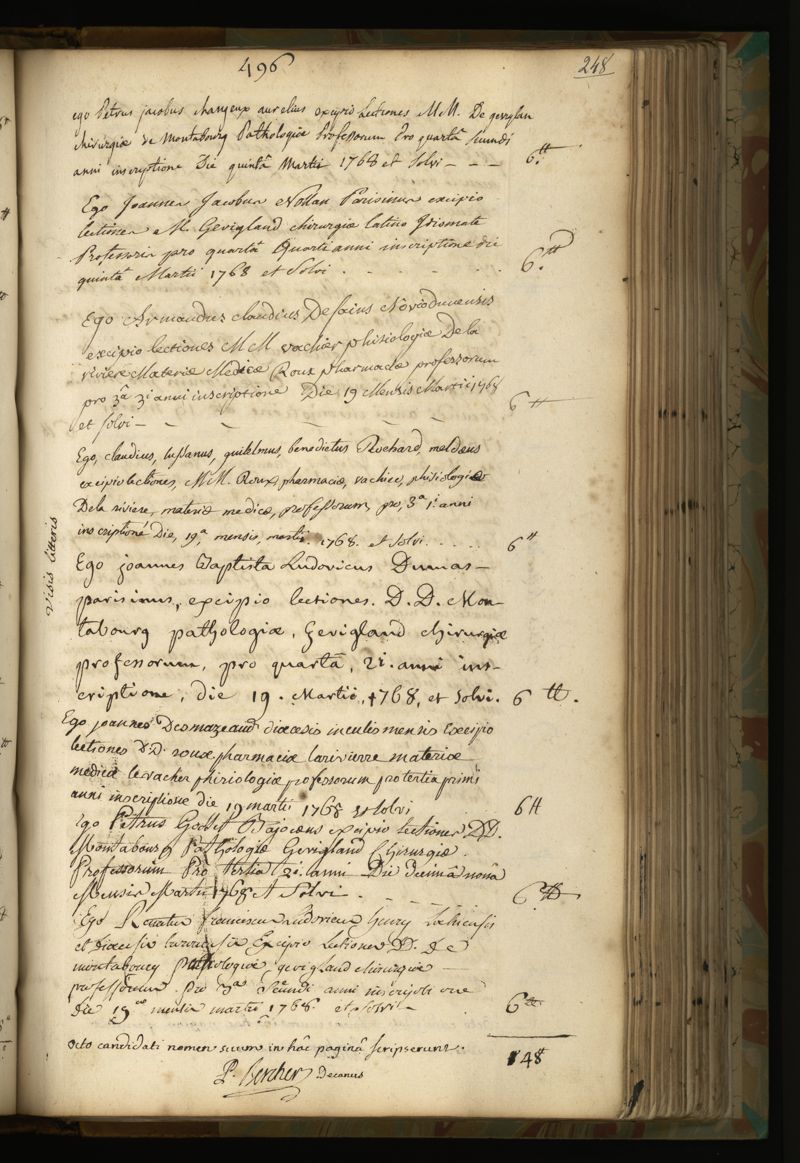 496
248
ego Petrus jacobus changeux aurelius excipio Lectiones M.M. De gevigland
chirurgiæ De Montabourg Pathologiæ Professorum Pro quartâ secundi
anni inscriptione Die quintâ Martii 1768 et Solvi - - - 6.tt
Ego Joannes Jacobus Nollan Parisinus excipio
lectiones M. Gevigland chirurgiæ latino Idiomate
Professoris pro quartâ Quarti anni inscriptione die
quintâ Martii 1768 et Solvi . - - - - - 6.tt
Ego Armandus claudius Desains Noviodunensis
excipio lectiones M M vacher phisiologiæ De la
riviere Materiæ Medicæ Roux pharmaciæ professorum
pro 3a 3i anni inscriptione Die 19 Mensis Martii 1768
et solvi - - - - - - 6 tt
Ego, claudius, lussanus, guilelmus, benedictus Rochard, meldæus
excipio lectiones, M.M. Roux pharmaciæ, vachier, phisiologiæ
De la riviere, materiæ medicæ, professorum, pro, 3a 1i anni
inscriptione Die, 19a, mensis, martii. 1768. et Solvi . . . . . 6 tt
Visis litteris
Ego joannes Baptista Ludovicus Dumas-
parisinus, excipio lectiones. D.D. Mon-
tabourg pathologiæ, Gevigland chirurgiæ
professorum, pro quartâ, 2i. anni ins-
criptione, die 19. Martii, 1768, et Solvi. 6 tt.
Ego joannes Desmazeaud diœcesis inculismensis Excipio
lectiones D.D. roux pharmaciæ lariviere materiæ
medicæ levacher phisiologiæ professorum pro tertia primi
anni inscriptione die 19 martii 1768 et solvi 6 tt
Ego Petrus Godet Bajocæus excipio Lectiones DD.
Montabourg Pathologiæ Gevigland Chirurgiæ
Professorum Pro tertia 2i. anni Die Decimâ nonâ
Mensis Martii 1768 et Solvi . - - - - 6 tt
Ego Renatus franciscus Ludovicus henry
et Diœcesis Excipio Lectiones DD. De
montabourg pathologiæ, gevigland chirurgiæ -
professorum. Pro 3a Secundi anni inscriptione
die 19a mensis martii 1768. et solvi - 6 tt
octo candidati nomen suum in hâc paginâ scripserunt. 48 tt
P. Bercher Decanus